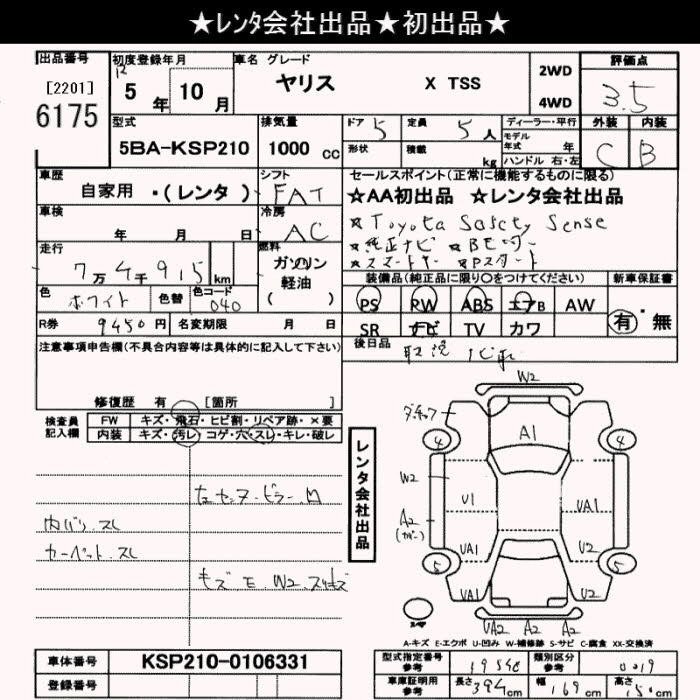 ★レンタ会社出品★初出品★
出品番号
[2201]
6175
初度登録年月
5年 10月
車名 グレード
ヤリス X TSS
2WD
4WD
評価点
3.5
外装 内装
C B
型式
5BA-KSP210
排気量
1000 cc
ドア 5
定員 5人
形状
積載 kg
ディーラー・平行
モデル年式 年
ハンドル 右・左
車歴
自家用 ・(レンタ )
シフト
FAT
セールスポイント(正常に機能するものに限る)
☆AA初出品 ☆レンタ会社出品
☆Toyota Safety Sense
☆純正ナビ ☆Bモニター
☆スマートキー ☆Pスタート
車検
年 月 日
冷房
AC
走行
7万4千915km
燃料
ガソリン
軽油
( )
色
ホワイト
色替
色コード
040
装備品(純正品に限り○をつけてください)
新車保証書
PS PW ABS エアB AW
SR ナビ TV カワ
有・無
R券 9450円
名変期限 月 日
後日品
取説
注意事項申告欄(不具合内容等は具体的に記入して下さい)
修復歴 有 [箇所
検査員記入欄
FW キズ・飛石・ヒビ割・リペア跡・×要
内装 キズ・汚レ・コゲ・穴・スレ・キレ・破レ
内バリ スレ
カーペット スレ
レンタ会社出品
W2
A1
4 4
W2
U1
UA1
A2
UA1
U2
5 5
UA1
U2
UA2 A2 A2
A-キズ E-エクボ U-凹み W-補修跡 S-サビ C-腐食 XX-交換済
車体番号
KSP210-0106331
登録番号
型式指定番号
参考
19548
類別区分
参考
0019
車庫証明用
参考
長さ 394cm
幅 169cm
高さ 150cm